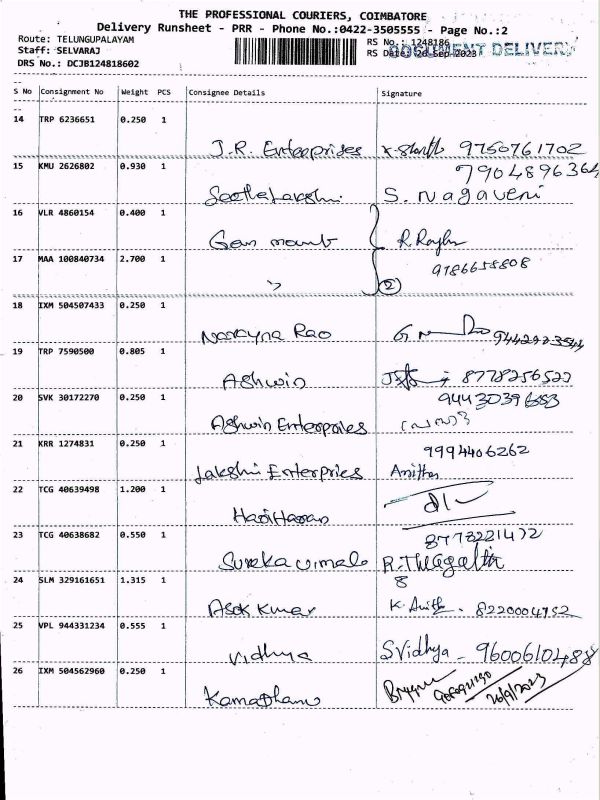 THE PROFESSIONAL COURIERS, COIMBATORE
Delivery Runsheet - PRR - Phone No.:0422-3505555 - Page No.:2
Route: TELUNGUPALAYAM
RS No.: 1248186
Staff: SELVARAJ
RS Date: 26-Sep-2023
DOCUMENT DELIVERY
DRS No.: DCJB124818602
S No Consignment No Weight PCS Consignee Details Signature
14 TRP 6236651 0.250 1
J.R. Enterprises 9750761702
15 KMU 2626802 0.930 1
7904896364
Seetha Lakshmi S. Nagaveni
16 VLR 4860154 0.400 1
17 MAA 100840734 2.700 1
9786658808
2
18 IXM 504507433 0.250 1
Narayna Rao
19 TRP 7590500 0.805 1
Ashwin
20 SVK 30172270 0.250 1
Ashwin Enterprises
21 KRR 1274831 0.250 1
9994406262
Lakshmi Enterprises Anitha
22 TCG 40639498 1.200 1
HariHaran
23 TCG 40638682 0.550 1
8778221472
24 SLM 329161651 1.315 1
Asok Kumar K. Anitha 8220004752
25 VPL 944331234 0.555 1
Vidhya S Vidhya - 9600610488
26 IXM 504562960 0.250 1
26/9/2023